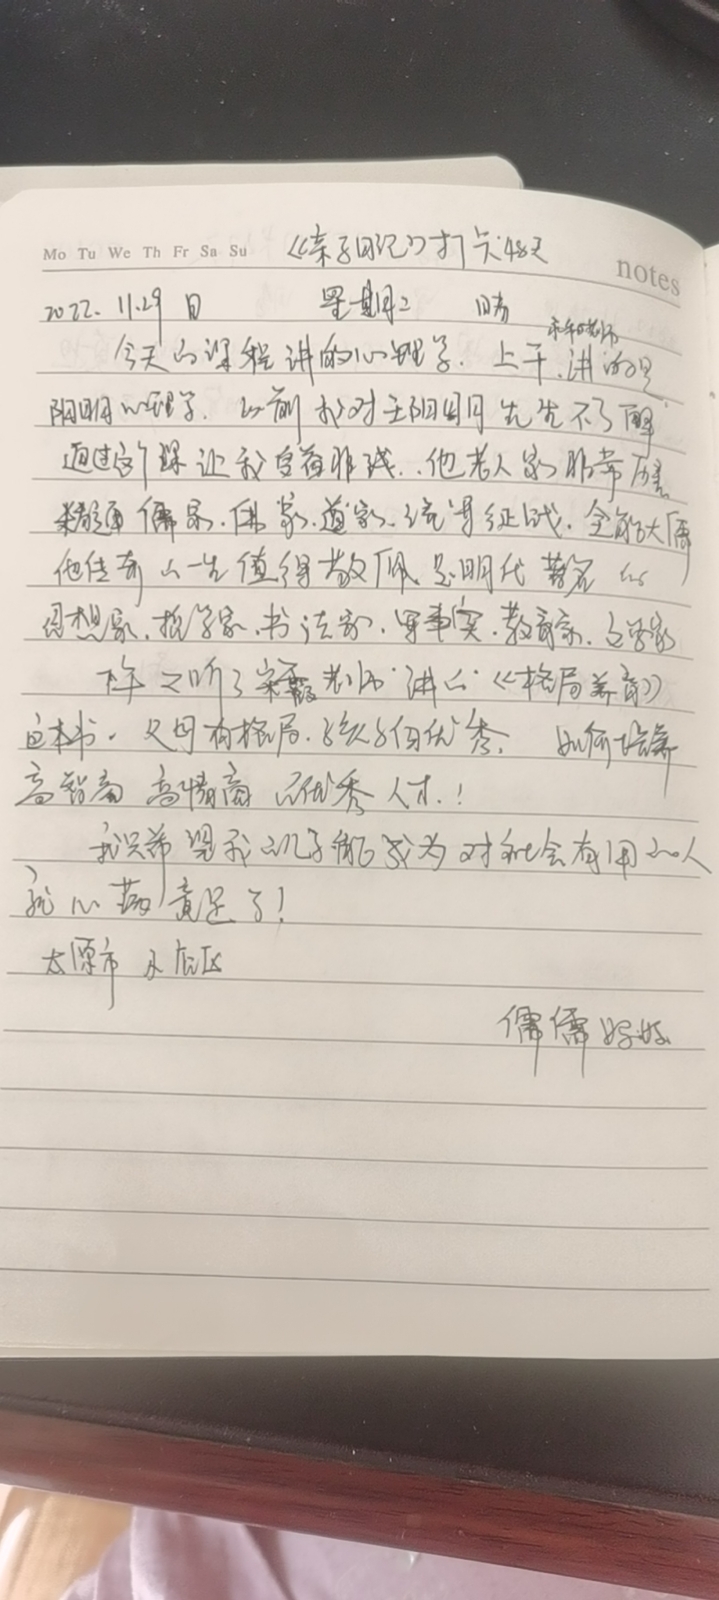 Mo Tu We Th Fr Sa Su 《亲子日记》打卡48天
notes
2022.11.29日 星期二 晴
老师
今天的课程讲的心理学.上午.讲的是
阴明心理学.以前我对王阴明先生不了解
通过这个课让我受益非浅..他老人家非常厉害
精通儒家.佛家.道家.统军征战.全能大儒
他传奇的一生值得敬佩是明代著名的
思想家.哲学家.书法家.军事家.教育家.文学家
下午又听了老师讲的《格局养育》
这本书.父母有格局.孩子自优秀. 如何培养
高智商 高情商 的优秀人才.！
我只希望我的儿子能成为对社会有用的人
我心满意足了！
太原市 小店区
儒儒妈妈